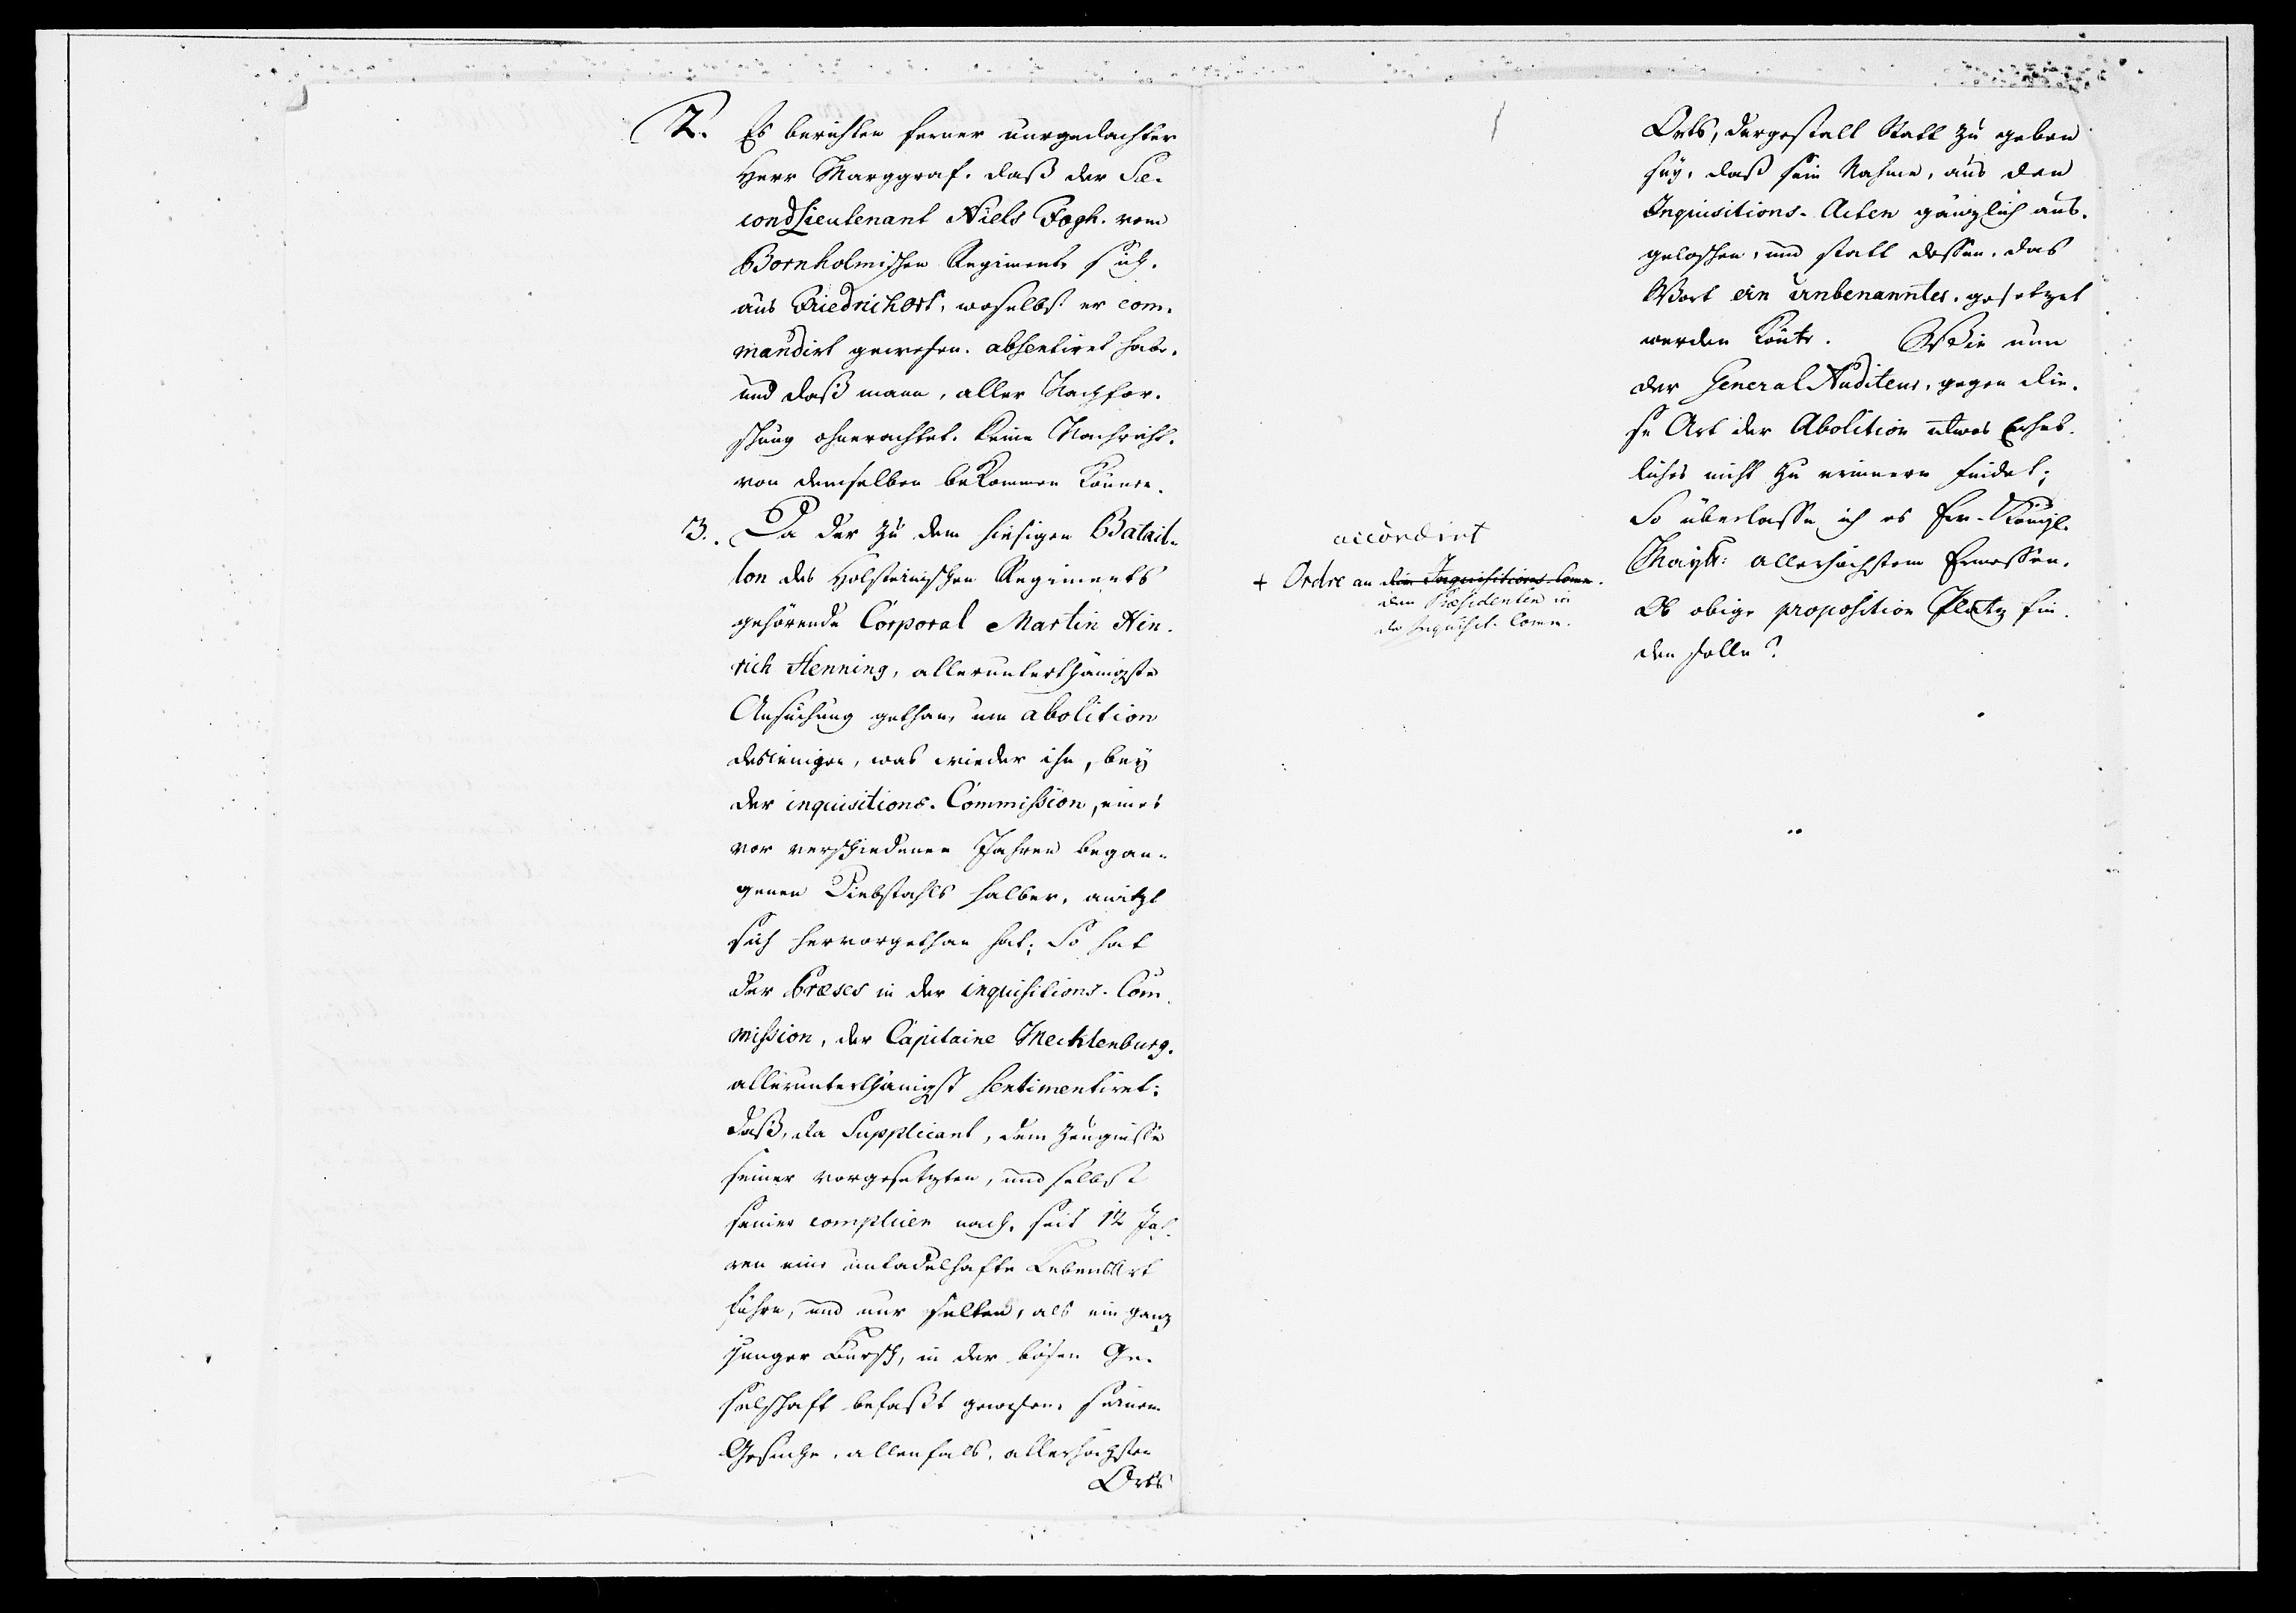 2. Es berichten ferner vorgedachter
Herr Marggraf. daß der Se-
condLieutenant Niels Fogh. vom
Bornholmischen Regiment, sich.
aus Friedrichort, woselbst er com-
mandirt gewesen. absentiret habe.
und daß mann, aller Nachfor-
schung ohnerachtet. keine Nachricht.
von demselben bekommen könne.
3. Da der zu dem hiesigen Batail-
lon des Holsteinischen Regiments
gehörende Corporal Martin Hin-
rich Henning, allerunterthänigste
Ansuchung gethan, um abolition
desienigen, was wieder ihn, bey
der inquisitions-Commission, eines
vor verschiedenen Jahren began-
genen Diebstahls halber, anitzt
sich hervorgethan hat; So hat
der Præses in der inquisitions-Com-
mission, der Capitaine Mecklenburg.
allerunterthänigst sentimentiret:
daß, da Supplicant, dem Zeugnisse
seiner vorgesetzten, und selbst
seiner complicen nach, seit 12 Jah-
ren eine untadelhafte LebensArt
führe, und nur selten, als ein ganz
junger Bursch, in der bösen Ge-
selschaft befaßt gewesen, seinem
Gesuche, allenfals, allerhöchsten
Orts
accordirt
+ Ordre an die Inquisitions-Comm.
den Præsidenten in
der Inquisit. Comm.
Orts, dergestalt Statt zu geben
sey, daß sein Nahme, aus den
Inquisitions-Acten gänzlich aus-
geloschen, und statt dessen, das
Wort ein unbenannter, gesetzet
werden könte. Wie nun
der General Auditeur, gegen die-
se Art der Abolition etwas Erheb-
liches nicht zu erinnern findet;
So überlasse ich es Ew. Königl.
Mayst: allerhöchstem Ermessen.
Ob obige proposition Platz fin-
den solle?